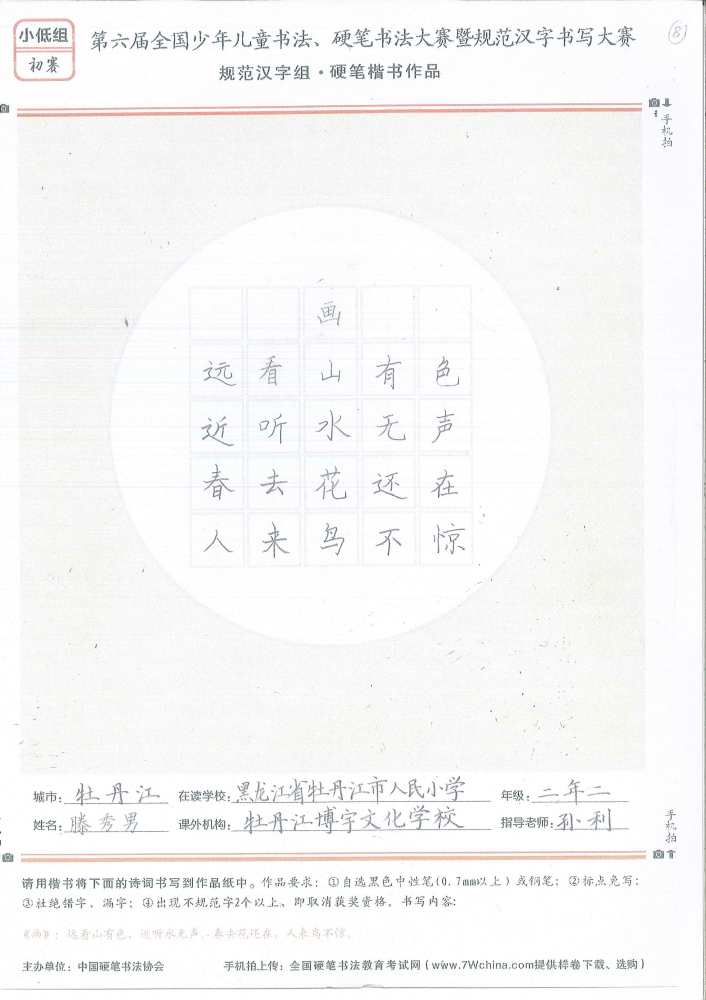 小低组
初赛
第六届全国少年儿童书法、硬笔书法大赛暨规范汉字书写大赛
规范汉字组·硬笔楷书作品
8
手机拍
画
远看山有色
近听水无声
春去花还在
人来鸟不惊
城市：牡丹江 在读学校：黑龙江省牡丹江市人民小学 年级：二年二
姓名：滕秀男 课外机构：牡丹江博宇文化学校 指导老师：孙利
手机拍
请用楷书将下面的诗词书写到作品纸中。作品要求：①自选黑色中性笔(0.7mm以上)或钢笔；②标点免写；
③杜绝错字、漏字；④出现不规范字2个以上、即取消获奖资格。书写内容：
《画》：远看山有色，近听水无声。春去花还在，人来鸟不惊。
主办单位：中国硬笔书法协会 手机拍上传：全国硬笔书法教育考试网（www.7Wchina.com提供样卷下载、选购）